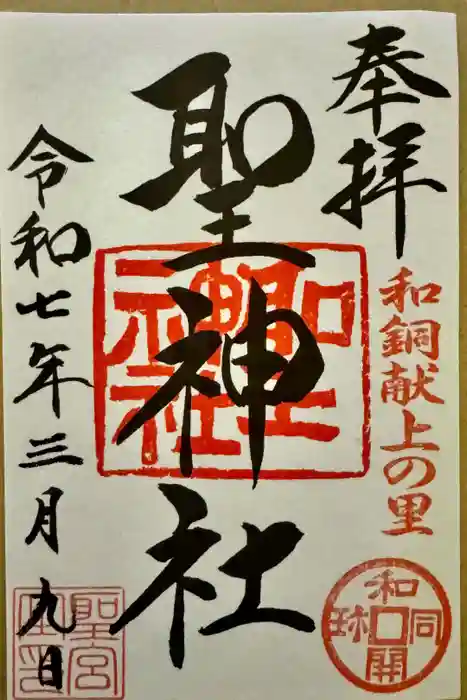 奉拝
和銅献上の里
和同開珎
聖神社
聖神社
令和七年三月九日
聖宮